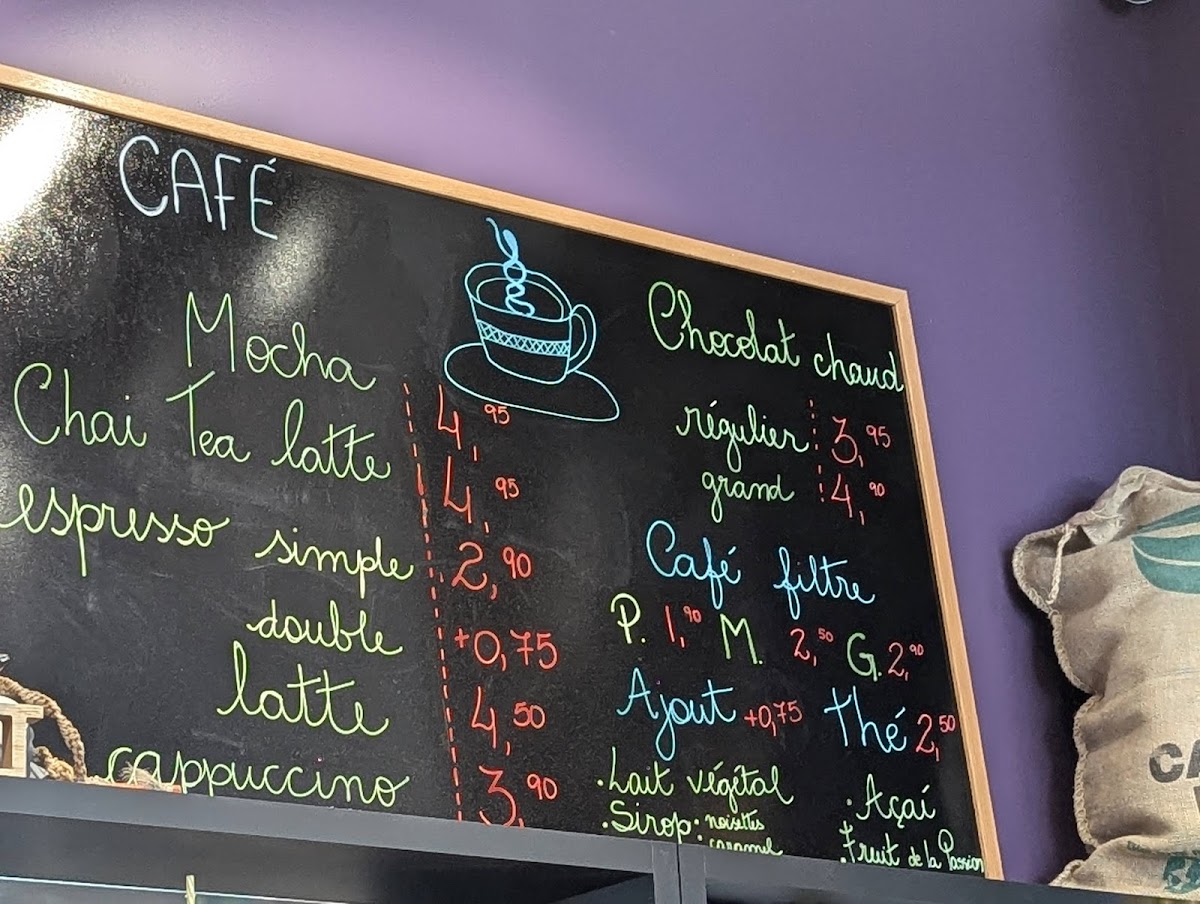 CAFÉ
Mocha 4,95
Chai Tea latte 4,95
espresso simple 2,90
double +0,75
latte 4,50
cappuccino 3,90
Chocolat chaud
régulier 3,95
grand 4,90
Café filtre
P. 1,90 M. 2,50 G. 2,90
Ajout +0,75
• Lait végétal
• Sirop: noisettes
caramel
Thé 2,50
• Açaí
• Fruit de la Passion